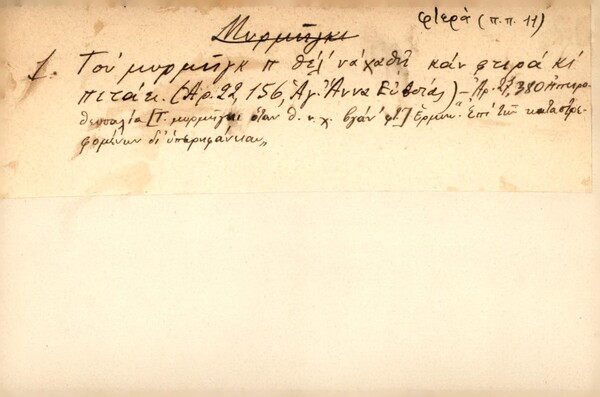 Μυρμήγκι
φτερά (π.π. 11)
1. Τού μυρμήγκ π θέλ' να χαθῆ κάν φτερά κί
πιτάει. (Ἀρ. 22, 156, Ἁγ. Ἄννα Εὐβοίας) – Ἀρ. 380 Ἠπειρο-
θεσσαλία [Τ. μυρμήγκι ὅταν θ. ν. χ. βγάν' φτ.] Ἑρμην. Ἐπί τῶν καταστρε-
φομένων δι' ὑπερηφάνειαν„